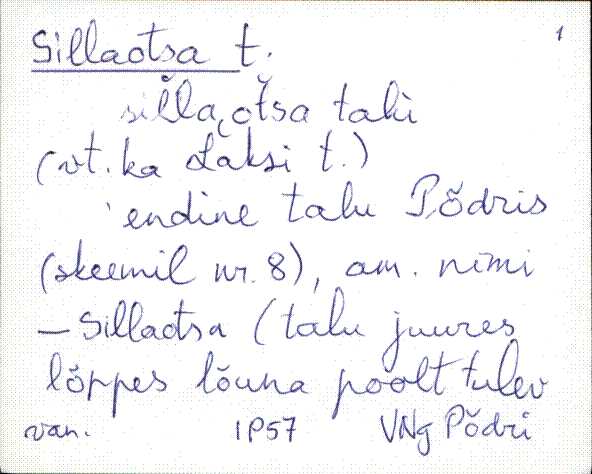 Sillaotsa t. 1
silla͜otsa talu
(vt. ka Laksi t.)
endine talu Põdris
(skeemil nr. 8), am. nimi
– Sillaotsa (talu juures
lõppes lõuna poolt tulev
van. IP57 VNg Põdri